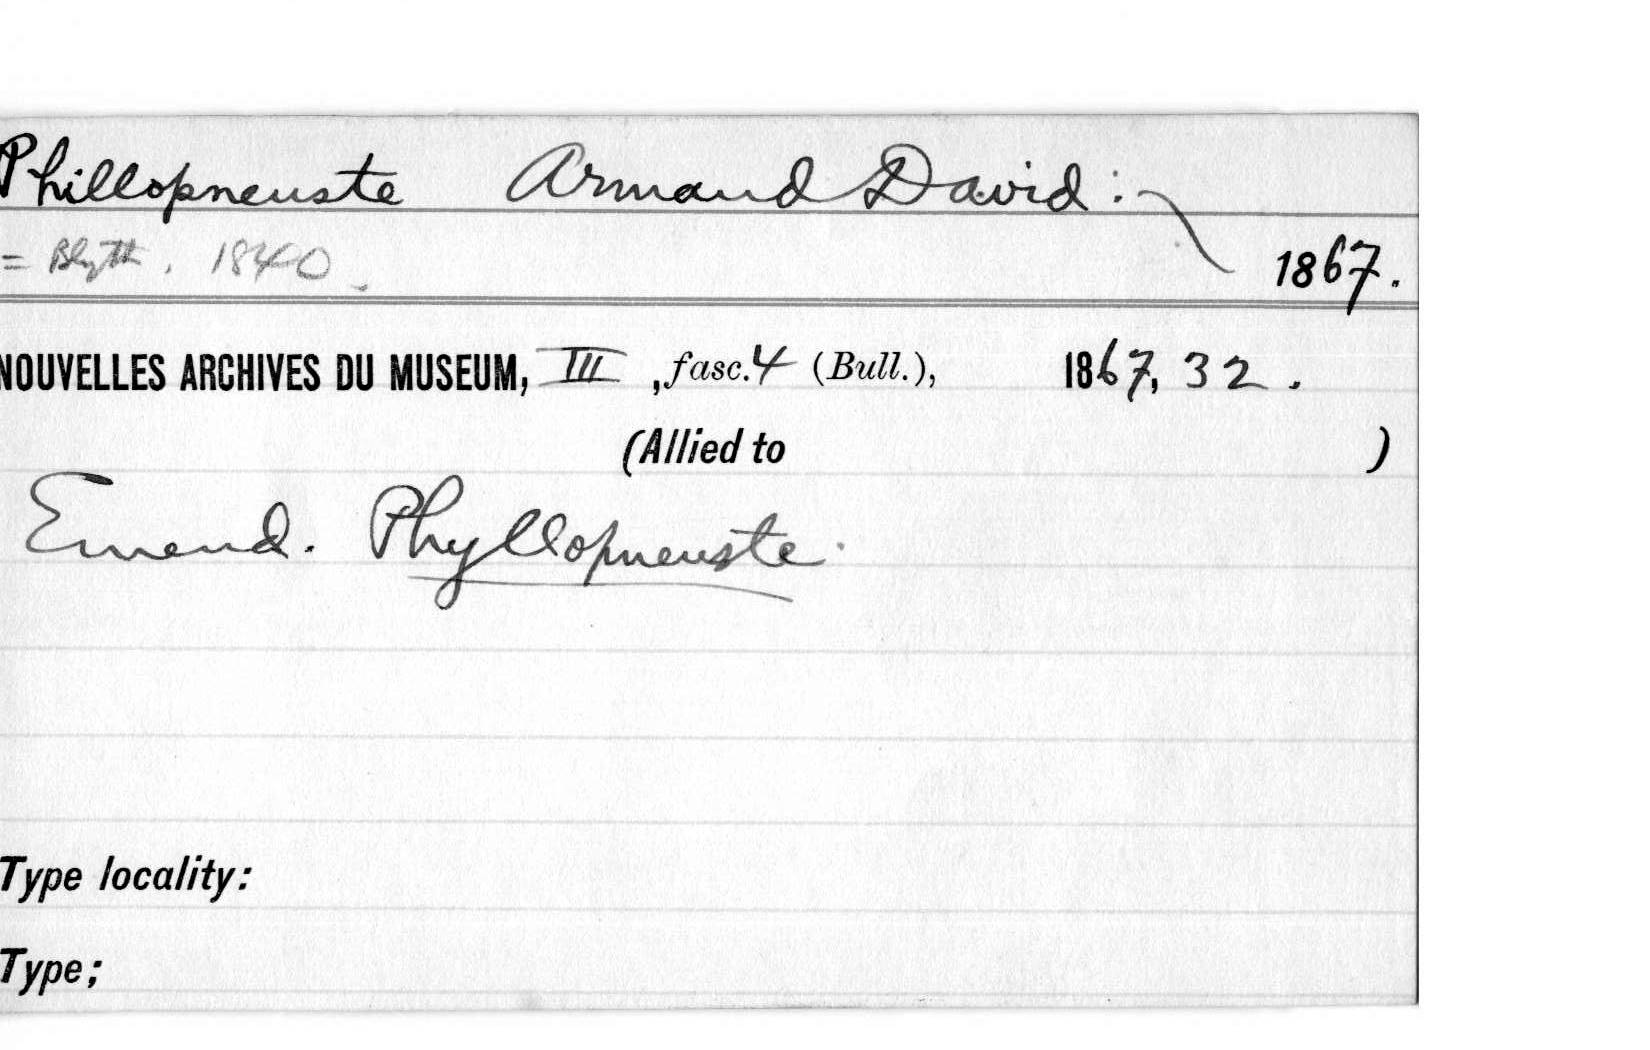 Phillopneuste Armand David:
= Blyth. 1840.
1867.
NOUVELLES ARCHIVES DU MUSEUM, III, fasc. 4 (Bull.), 1867, 32.
(Allied to )
Emend. Phyllopneuste.
Type locality:
Type;